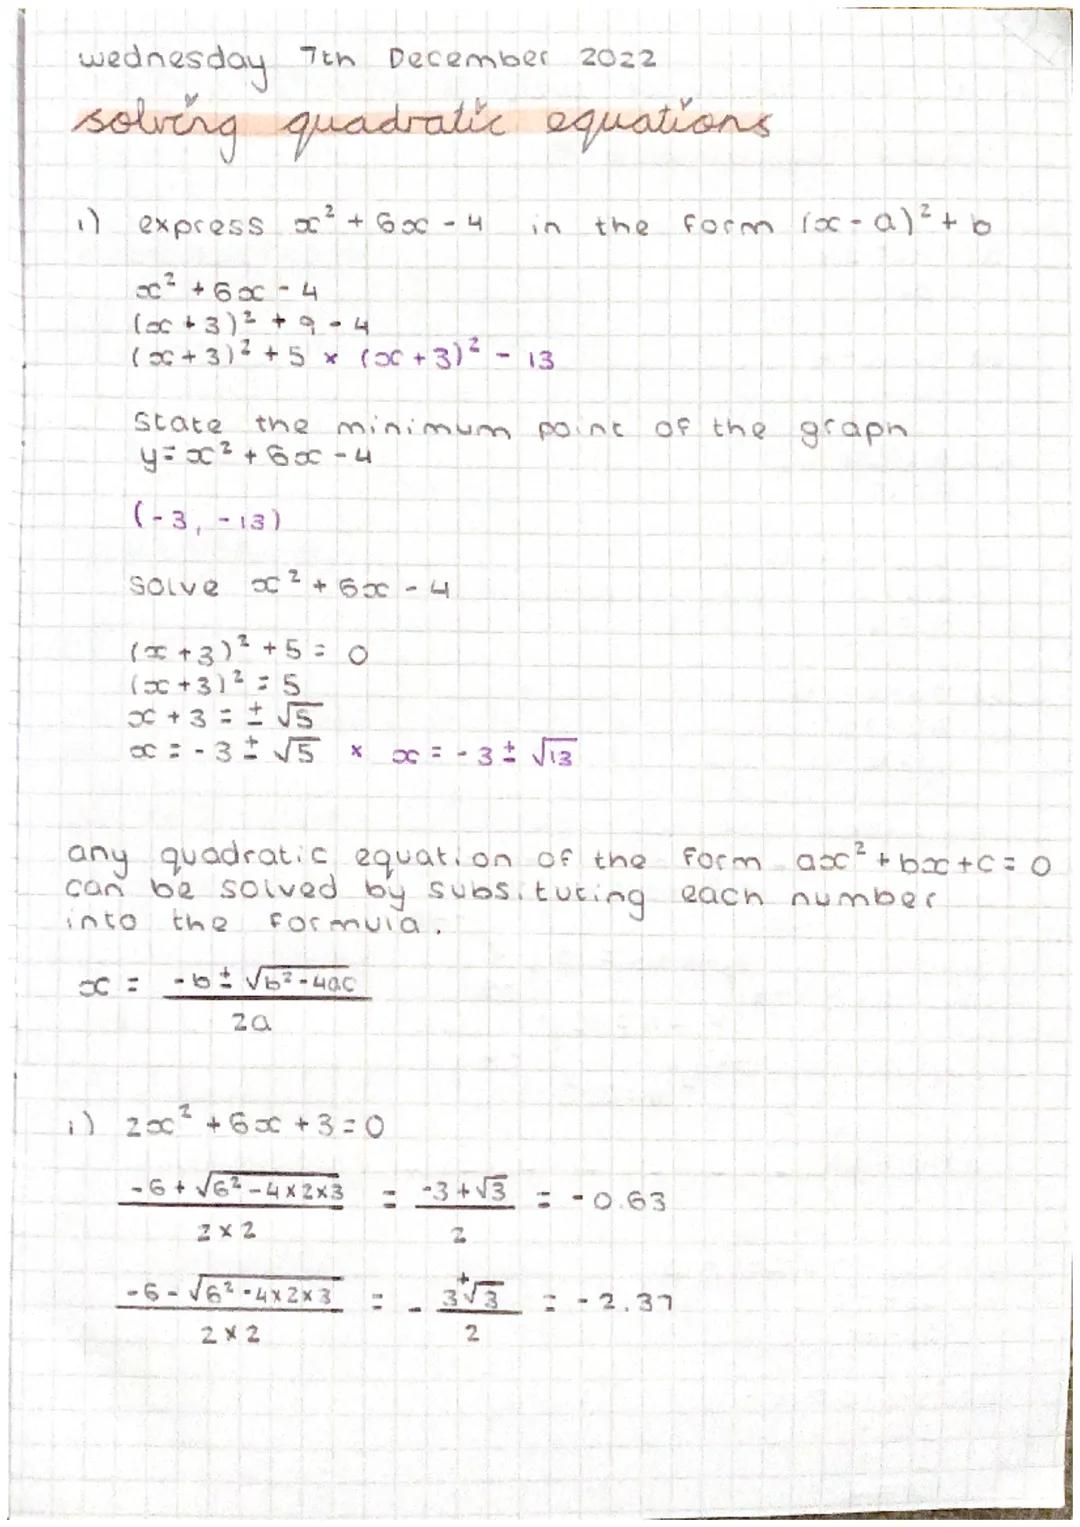 wednesday 7th December 2022
solving quadratic equations
i) express x² + 6x - 4 in the form (x - a)² + b
x² + 6x - 4
(x + 3)² + 9 - 4
(x + 3)² + 5 × (x + 3)² - 13
State the minimum point of the graph
y = x² + 6x - 4
(-3, -13)
Solve x² + 6x - 4
(x + 3)² + 5 = 0
(x + 3)² = 5
x + 3 = ± √5
x = - 3 ± √5 × x = - 3 ± √13
any quadratic equation of the form ax² + bx + c = 0
can be solved by subsituting each number
into the formula.
x = -b ± √b² - 4ac
2a
i) 2x² + 6x + 3 = 0
-6 + √6² - 4 × 2 × 3 = -3 + √3 = - 0.63
2 × 2 2
-6 - √6² - 4 × 2 × 3 = - 3 + √3 = - 2.37
2 × 2 2